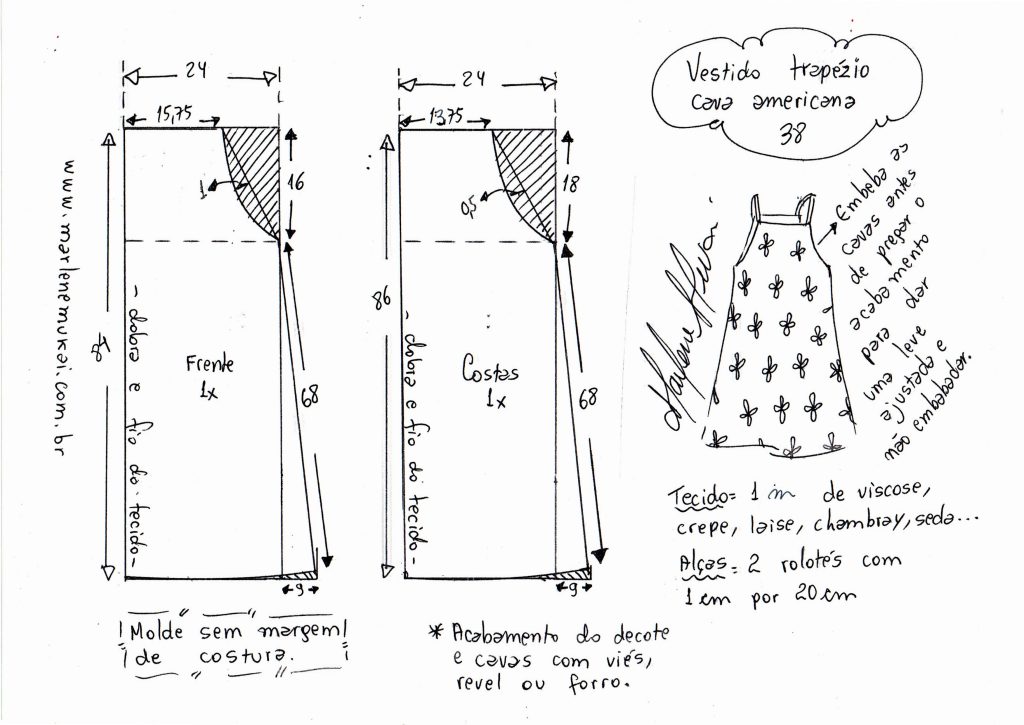 24
15,75
1
16
84
- dobra e fio do tecido -
Frente
1x
68
9
www.marlenemukai.com.br
24
13,75
0,5
18
86
- dobra e fio do tecido -
Costas
1x
68
9
Vestido trapézio
cava americana
38
Embeba as
cavas antes
de pregar o
acabamento
para dar
uma leve
ajustada e
não embabadar.
Marlene Mukai
Tecido = 1 m de viscose,
crepe, laise, chambray, seda...
Alças = 2 rolotés com
1 cm por 20 cm
Molde sem margem
de costura.
* Acabamento do decote
e cavas com viés,
revel ou forro.